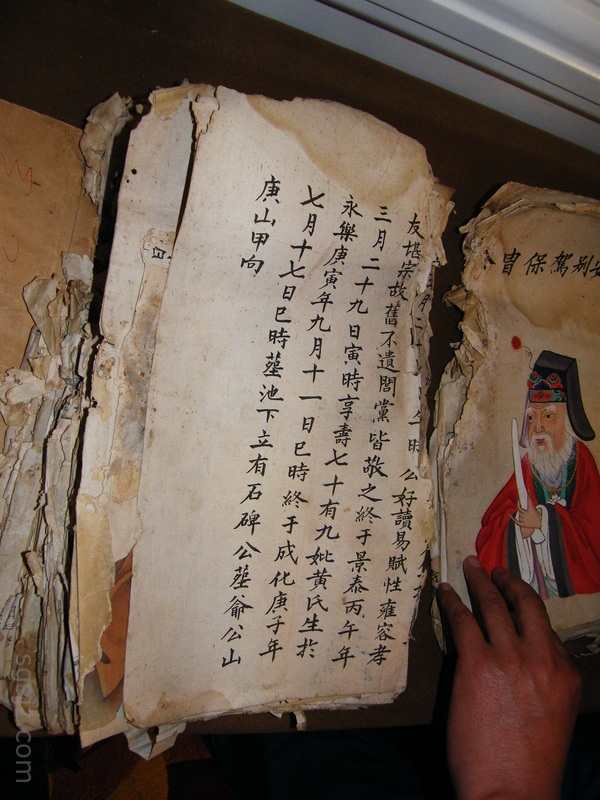 別駕保
時公好讀易賦性雍容孝
友堪宗故舊不遺閭黨皆敬之終于景泰丙午年
三月二十九日寅時享壽七十有九妣黃氏生於
永樂庚寅年九月十一日巳時終于成化庚子年
七月十七日巳時塟池下立有石碑公塟爺公山
庚山甲向